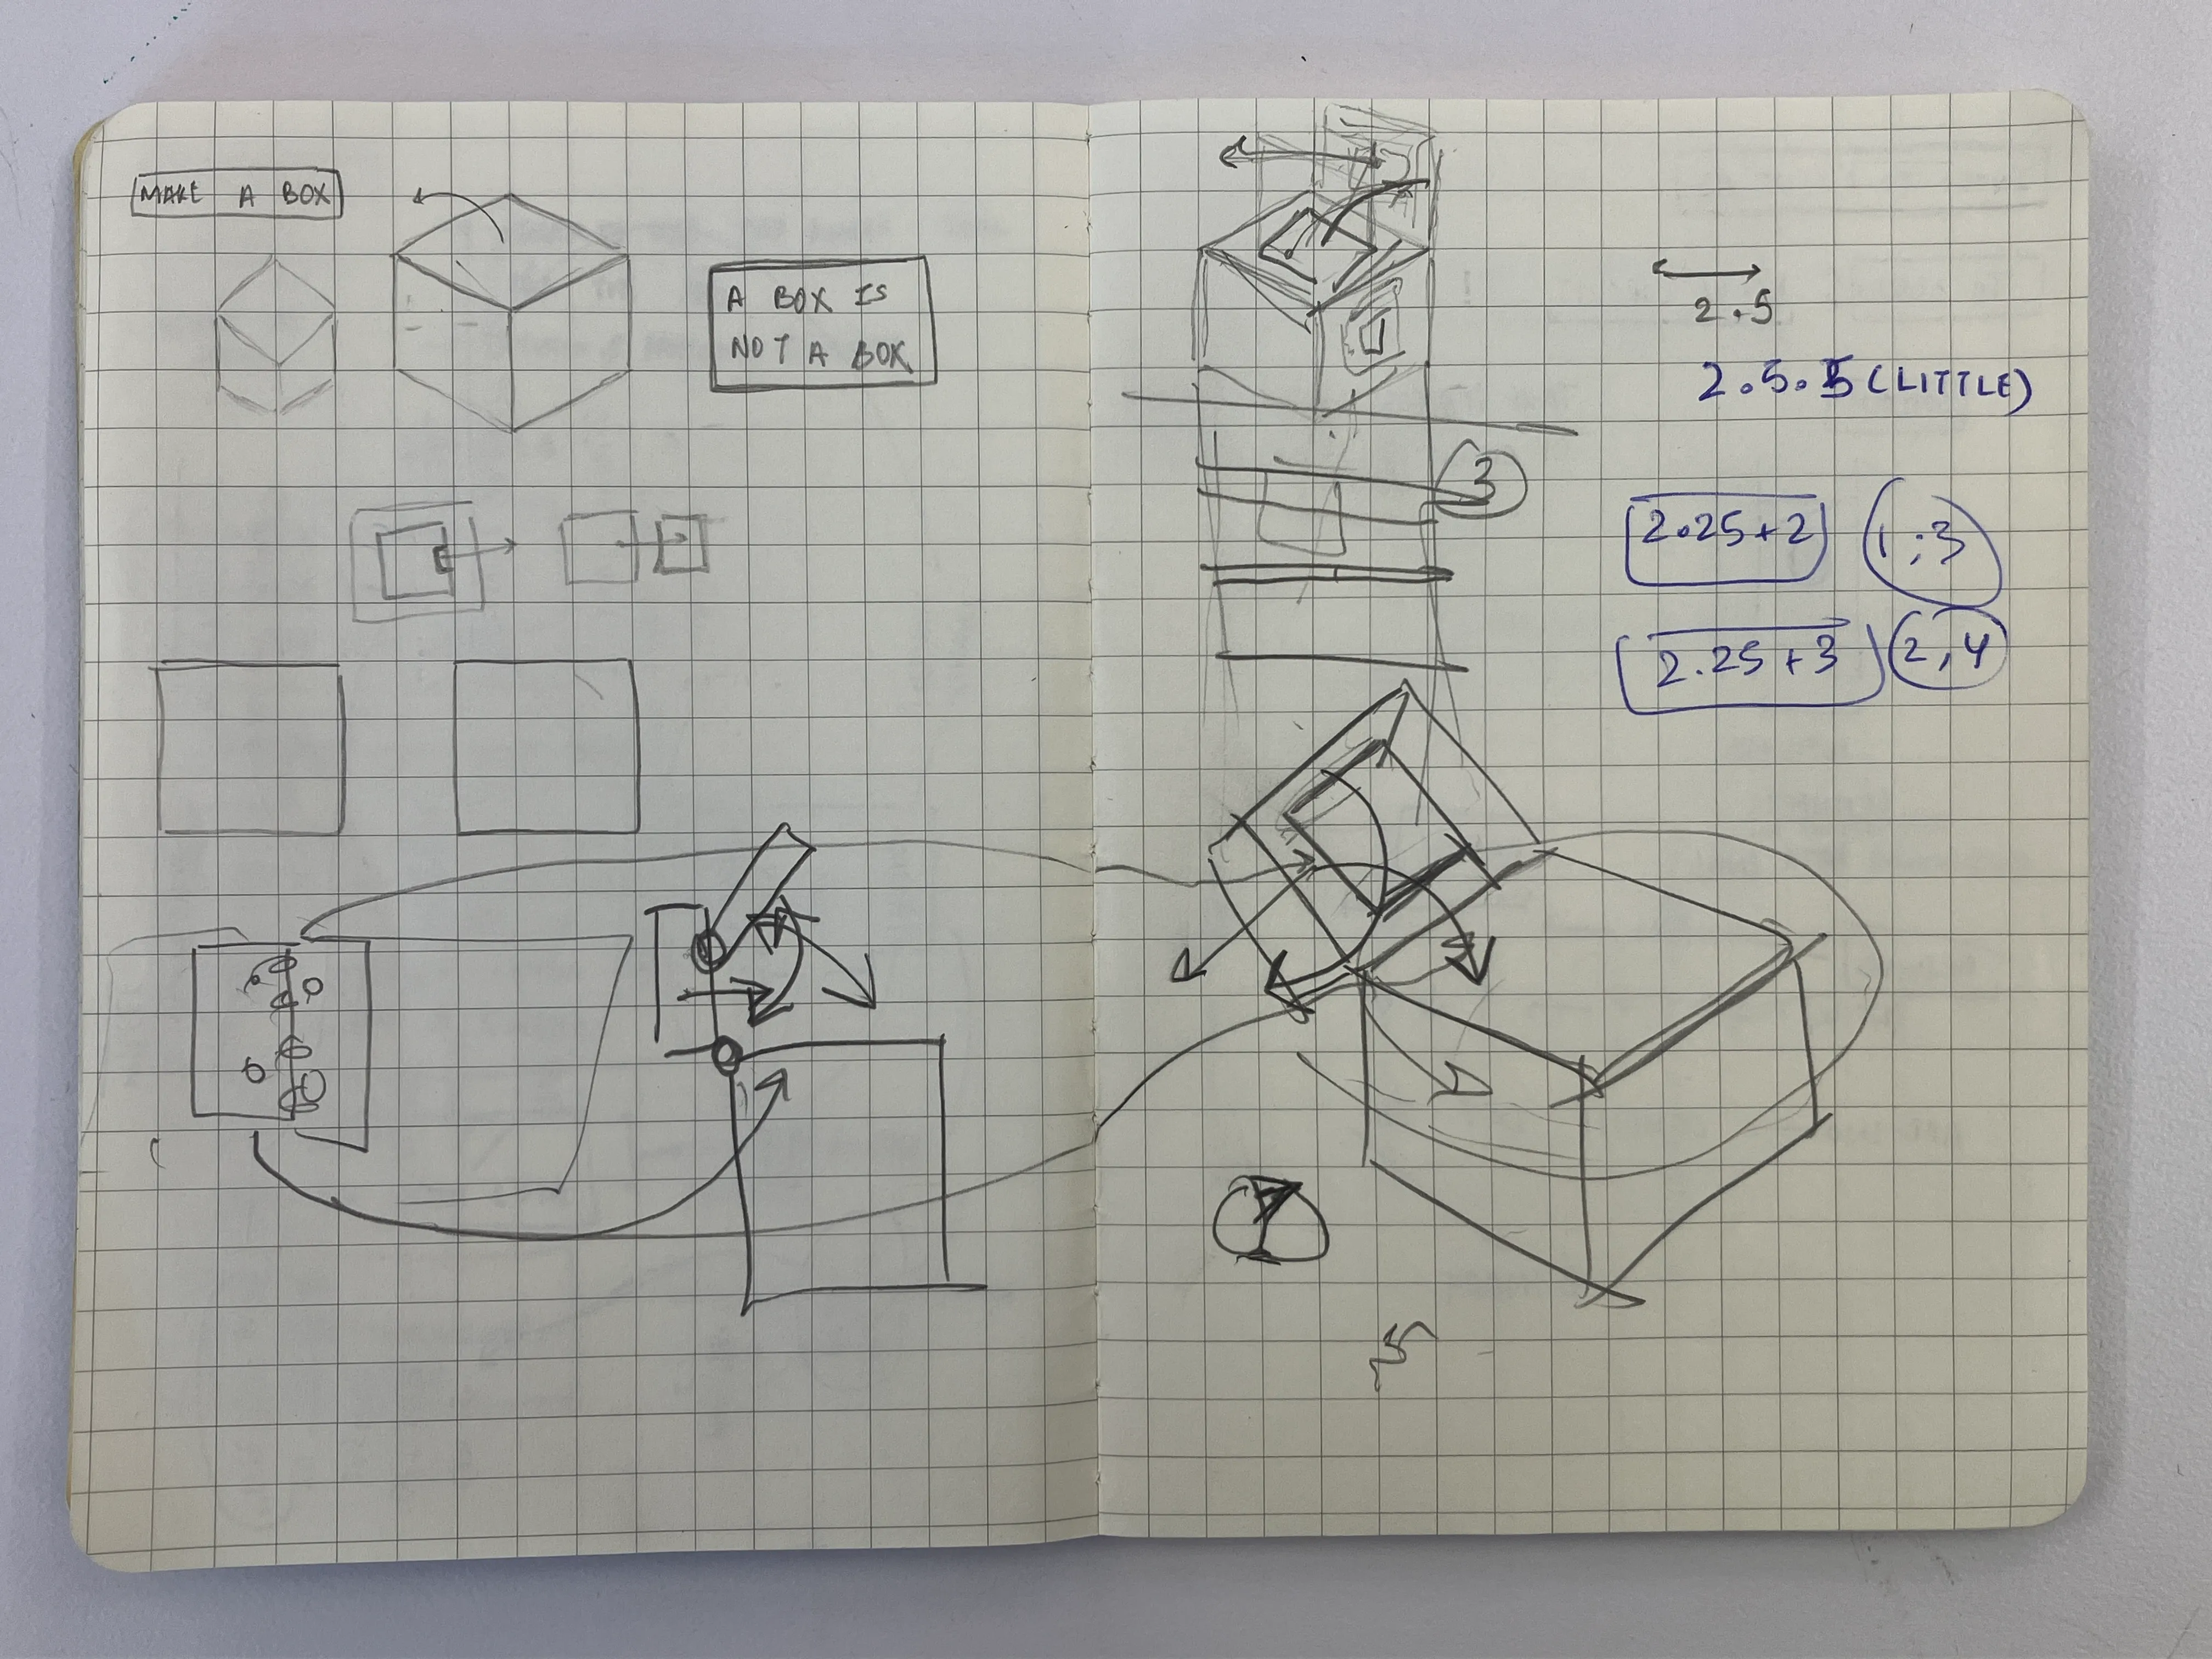 MAKE A BOX
A BOX IS
NOT A BOX
2.5
2.5.5 (LITTLE)
3
2.25+2
1;3
2.25+3
2,4